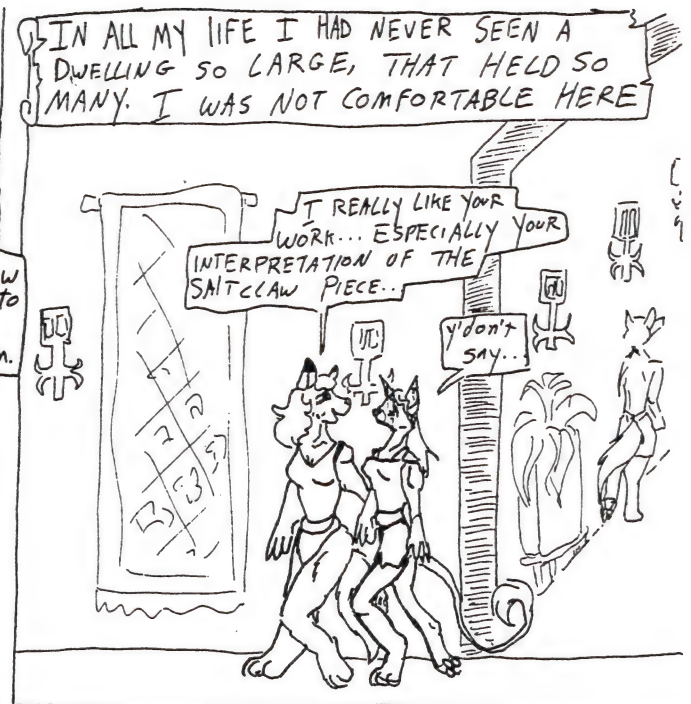 IN ALL MY lIFE I HAD NEVER SEEN A
DWELLING SO LARGE, THAT HELD SO
MANY. I WAS NOT COMFORTABLE HERE
I REALLY LIKE YOUR
WORK... ESPECIALLY YOUR
INTERPRETATION OF THE
SAltCLAW PIECE..
y'don't
say...
to